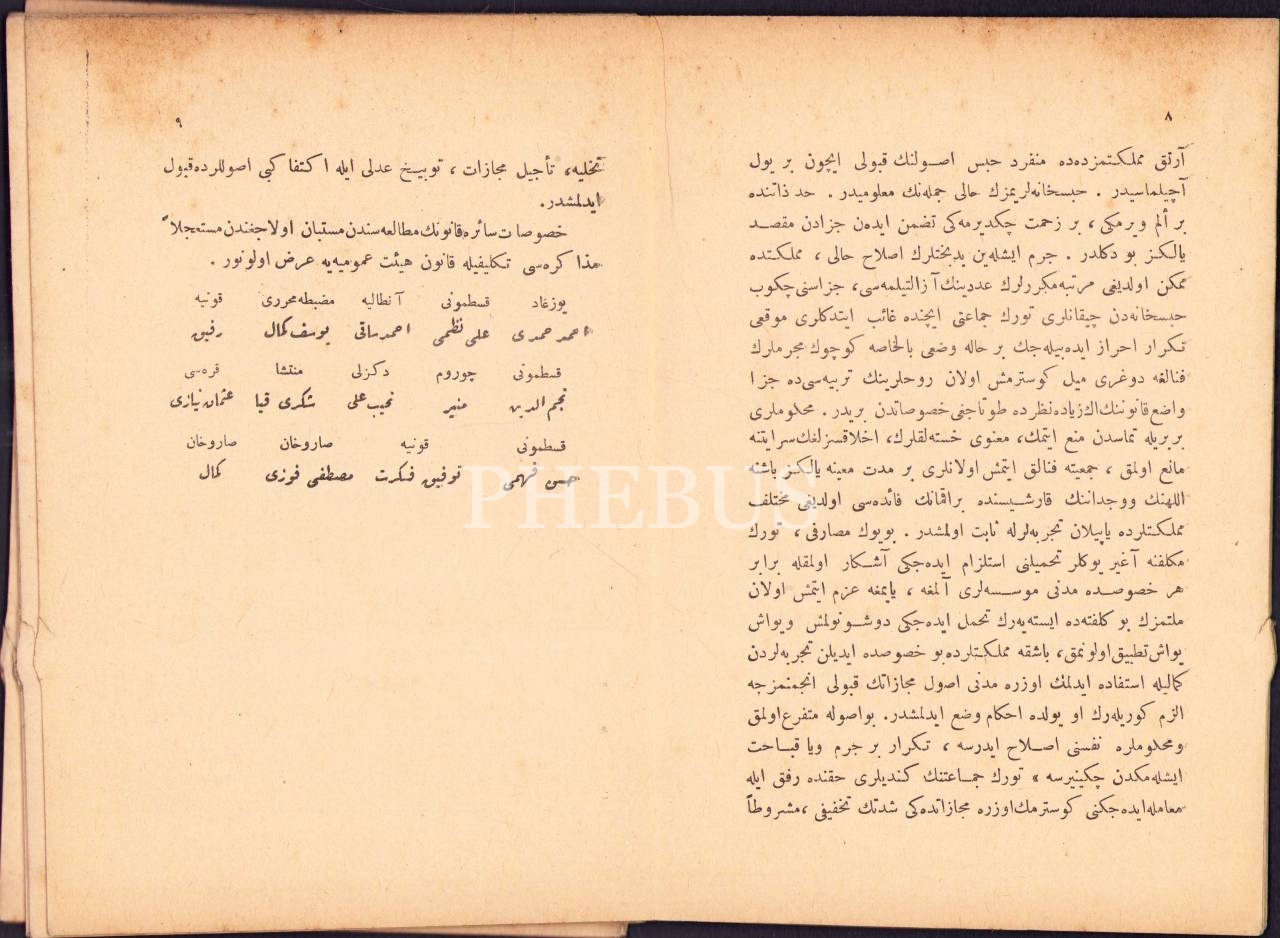 ٨
آرتق مملكتمزده‌ده منفرد حبس اصولنك قبولی ایچون بر یول
آچیلماسیدر . حبسخانه‌لریمزك حالی جمله‌نك معلومیدر . حد ذاتنده
بر ألم ویرمكی ، بر زحمت چكدیرمه‌كی تضمن ایده‌ن جزادن مقصد
یالكز بو دكلدر . جرم ایشله‌ین بدبختلرك اصلاح حالی ، مملكتده
ممكن اولدیغی مرتبه مكررلرك عددینك آزالتیلمه‌سی ، جزاسنی چكوب
حبسخانه‌دن چیقانلری تورك جماعتی ایچنده غائب ایتدكلری موقعی
تكرار احراز ایده‌بیله‌جك بر حاله وضعی بالخاصه كوچوك مجرملرك
فنالغه دوغری میل كوسترمش اولان روحلرینك تربیه‌سی‌ده جزا
واضع قانوننك اك زیاده نظرده طوتاجغی خصوصاتدن بریدر . محكوملری
بربریله تماسدن منع ایتمك ، معنوی خسته‌لقلرك ، اخلاقسزلغك سرایتنه
مانع اولمق ، جمعیته فنالق ایتمش اولانلری بر مدت معینه یالكز باشنه
اللهنك ووجداننك قارشیسنده براقمانك فائده‌سی اولدیغی مختلف
مملكتلرده یاپیلان تجربه‌لرله ثابت اولمشدر . بویوك مصارفی ، تورك
مكلفنه آغیر یوكلر تحمیلنی استلزام ایده‌جكی آشكار اولمقله برابر
هر خصوصده مدنی موسسه‌لری آلمغه ، یاپمغه عزم ایتمش اولان
ملتمزك بو كلفته‌ده ایسته‌یه‌رك تحمل ایده‌جكی دوشونولمش ویواش
یواش تطبیق اولونمق ، باشقه مملكتلرده بو خصوصده ایدیلن تجربه‌لردن
كمالیله استفاده ایدلمك اوزره مدنی اصول مجازاتك قبولی انجمنمزجه
الزم كوریله‌رك او یولده احكام وضع ایدلمشدر. بواصوله متفرع اولمق
ومحكوملره نفسنی اصلاح ایدرسه ، تكرار بر جرم ویا قباحت
ایشله‌مكدن چكینیرسه » تورك جماعتنك كندیلری حقنده رفق ایله
معامله ایده‌جكنی كوسترمك اوزره مجازاتده‌كی شدتك تخفیفی ، مشروطاً
٩
تخلیه، تأجیل مجازات ، توبیخ عدلی ایله اكتفا كبی اصوللرده قبول
ایدلمشدر.
خصوصات سائره قانونك مطالعه‌سندن مستبان اولاجغندن مستعجلاً
مذاكره‌سی تكلیفیله قانون هیئت عمومیه‌یه عرض اولونور .
یوزغاد قسطمونی آنطالیه مضبطه محرری قونیه
احمد حمدی علی نظمی احمد ساقی یوسف كمال رفیق
قسطمونی چوروم دكزلی منتشا قره‌سی
نجم الدین منیر نجیب علی شكری قیا عثمان نیازی
قسطمونی قونیه صاروخان صاروخان
حسن فهمی توفیق فكرت مصطفی فوزی كمال
PHEBUS